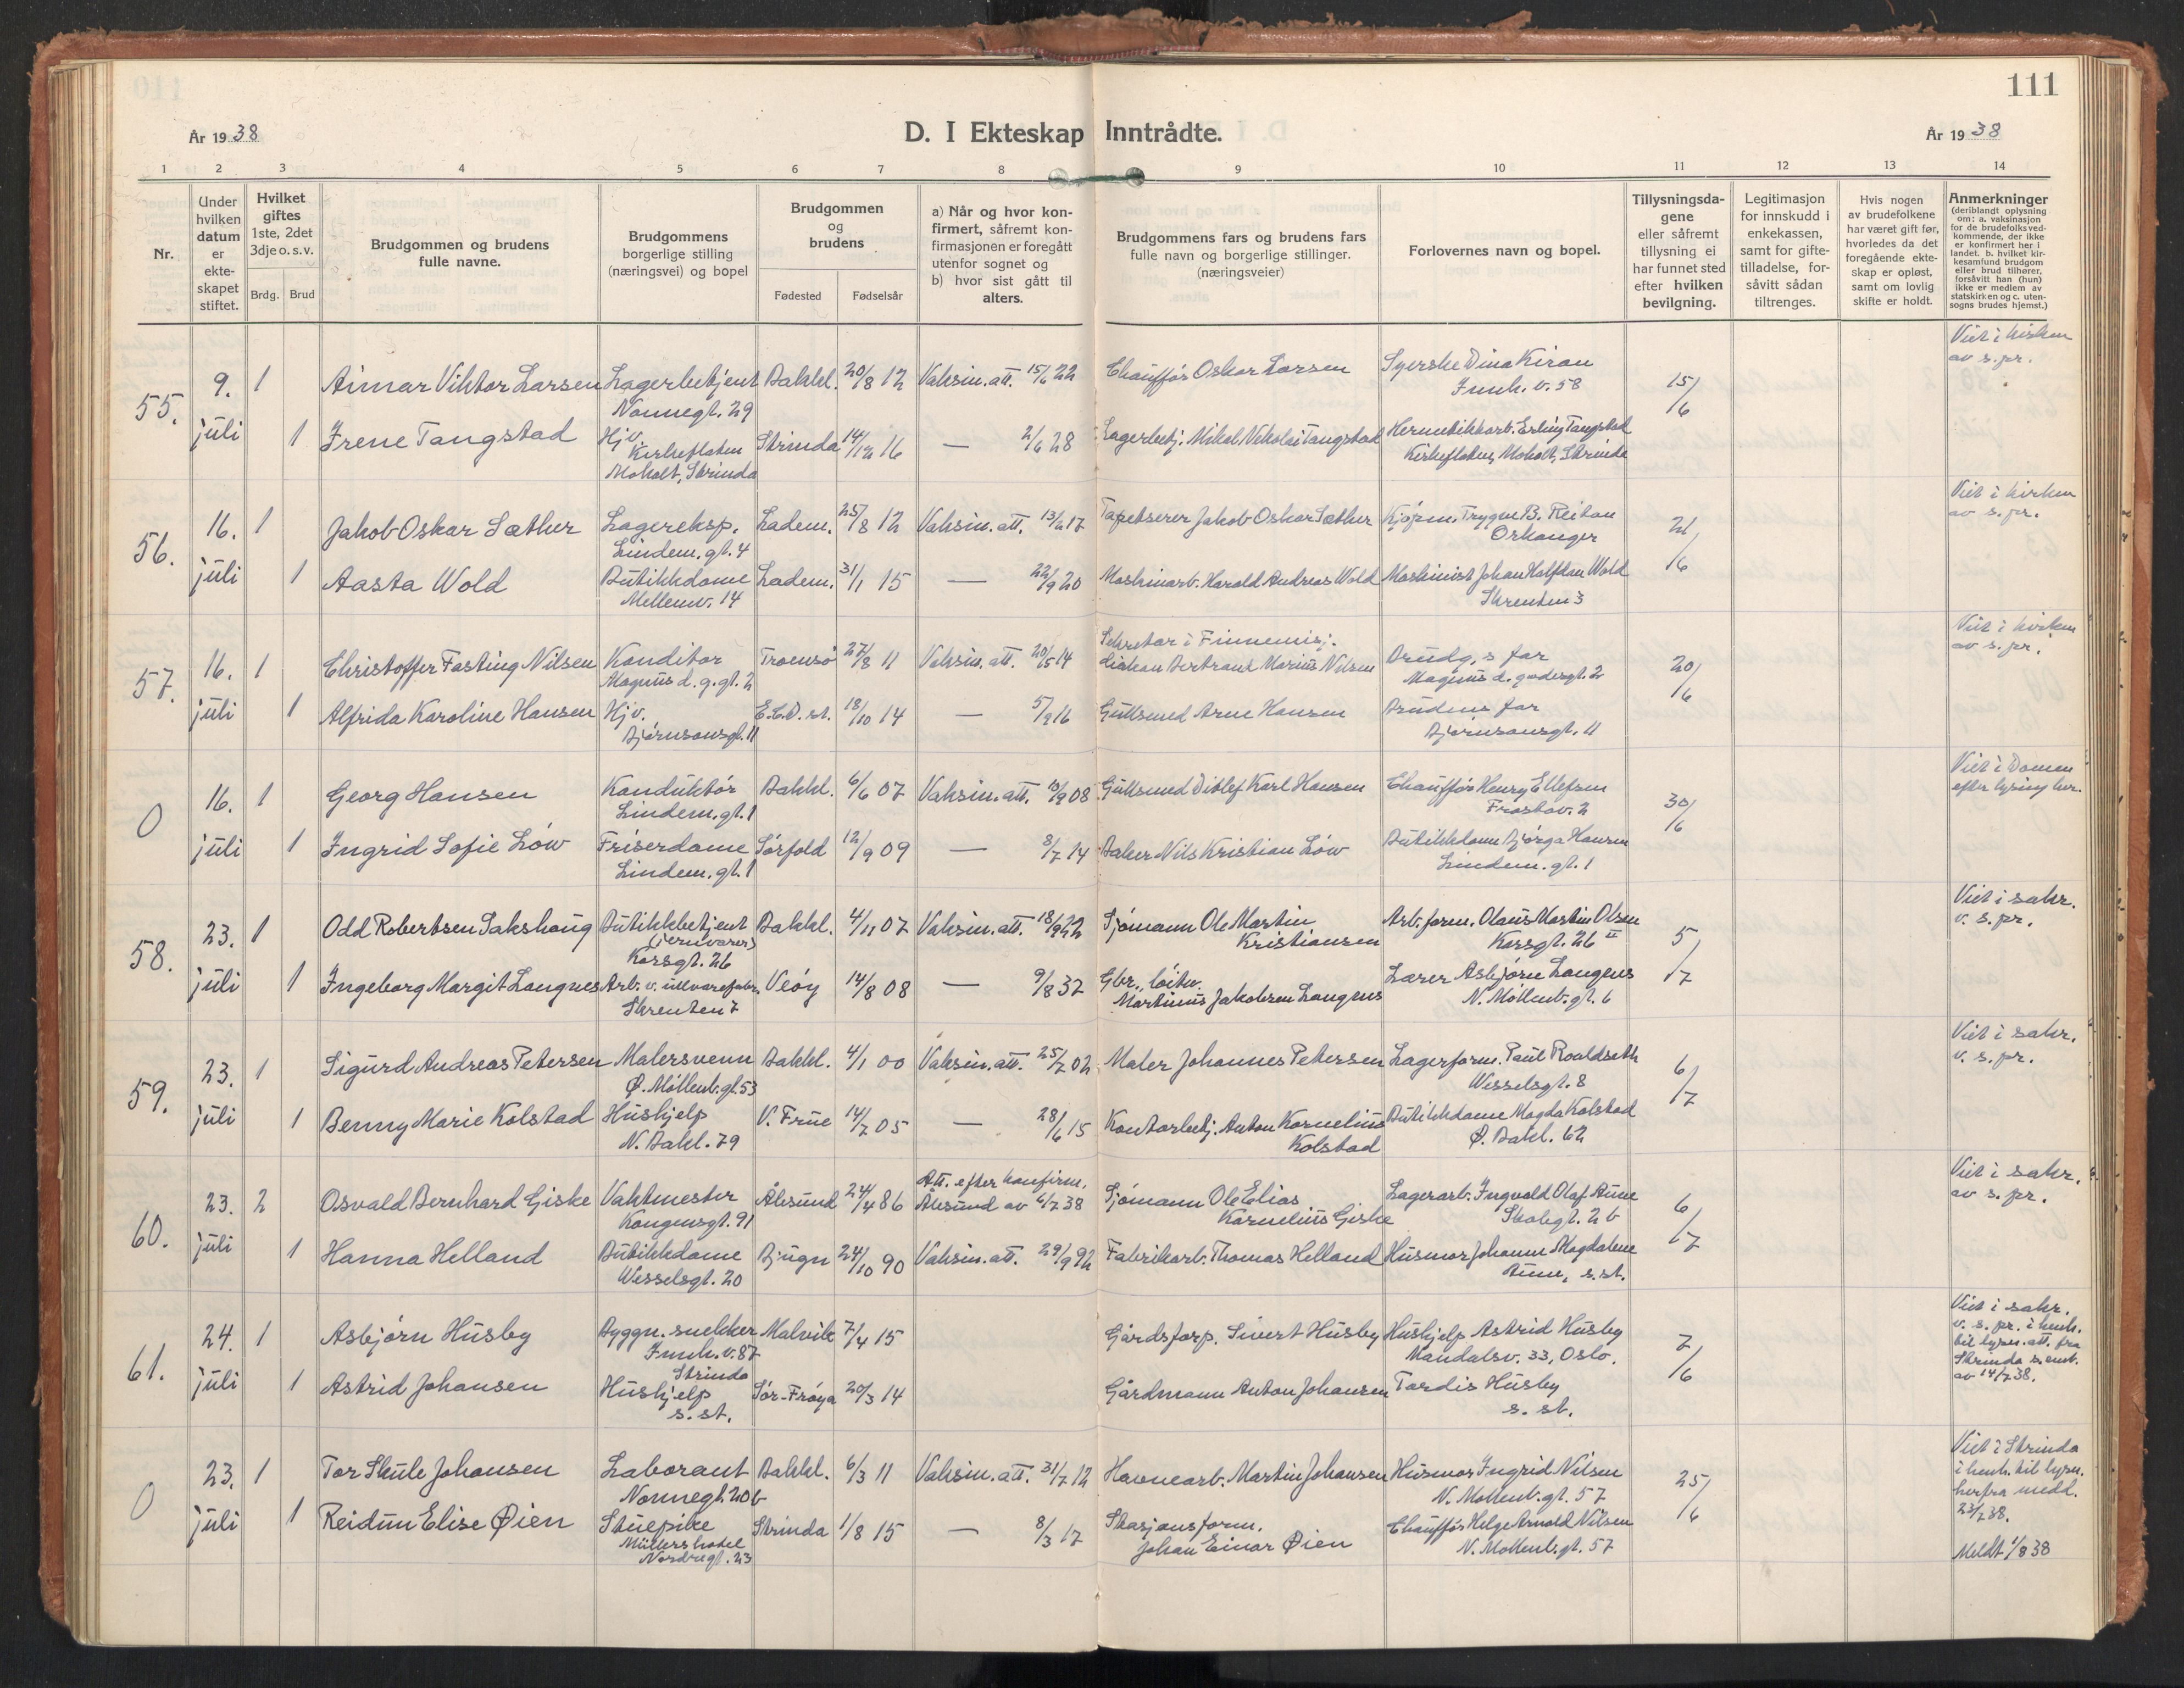 111
År 1938
D. I Ekteskap Inntrådte.
År 1938
1 2 3 4 5 6 7 8 9 10 11 12 13 14
Nr.
Under hvilken datum er ekte-skapet stiftet.
Hvilket giftes 1ste, 2det 3dje o. s. v.
Brdg. Brud
Brudgommen og brudens fulle navne.
Brudgommens borgerlige stilling (næringsvei) og bopel
Brudgommen og brudens
Fødested Fødselsår
a) Når og hvor kon-firmert, såfremt kon-firmasjonen er foregått utenfor sognet og b) hvor sist gått til alters.
Brudgommens fars og brudens fars fulle navn og borgerlige stillinger. (næringsveier)
Forlovernes navn og bopel.
Tillysningsda-gene eller såfremt tillysning ei har funnet sted efter hvilken bevilgning.
Legitimasjon for innskudd i enkekassen, samt for gifte-tilladelse, for-såvitt sådan tiltrenges.
Hvis nogen av brudefolkene har været gift før, hvorledes da det foregående ekte-skap er opløst, samt om lovlig skifte er holdt.
Anmerkninger (deriblandt oplysning om: a. vaksinasjon for de brudefolks ved-kommende, der ikke er konfirmert her i landet. b. hvilket kir-kesamfund brudgom eller brud tilhører, forsåvitt han (hun) ikke er medlem av statskirken og c. uten-sogns brudes hjemst.)
55. 9. juli 1 Aimar Viktor Larsen Lagerbetjent Nonnegt. 29 Bakkl. 20/8 12 Vaksin. att. 15/6 22 Chauffør Oskar Larsen Syerske Dina Kiran Innh. v. 58 15/6 Viet i kirken av s. pr.
1 Irene Tangstad Hjv. Kirkeflaten Moholt, Strinda Strinda 14/12 16 — 2/6 28 Lagerbetj. Mikal Nikolai Tangstad Hermetikkarb. Erling Tangstad Kirkeflaten, Moholt, Strinda
56. 16. juli 1 Jakob Oskar Sæther Lagereksp. Lindem. gt. 4 Ladem. 25/8 12 Vaksin. att. 13/6 17 Tapetserer Jakob Oskar Sæther Kjøpm. Trygve B. Reitan Orkanger 21/6 Viet i kirken av s. pr.
1 Aasta Wold Butikkdame Mellemv. 14 Ladem. 31/1 15 — 22/9 20 Maskinarb. Harald Andreas Wold Maskinist Johan Halfdan Wold Skrenten 3
57. 16. juli 1 Christoffer Fasting Nilsen Konditor Magnus d. g. gt. 2 Tromsø 27/8 11 Vaksin. att. 20/5 14 Sekretær i Finnemisj. Bertrand Marius Nilsen Brudg.s far Magnus d. godesgt. 2 20/6 Viet i kirken av s. pr.
1 Alfrida Karoline Hansen Hjv. Bjørnsonsgt. 11 E.C.D. st. 18/10 14 — 5/9 16 Gullsmed Arne Hansen Brudens far Bjørnsonsgt. 11
0 16. juli 1 Georg Hansen Konduktør Lindem. gt. 1 Bakkl. 6/6 07 Vaksin. att. 10/9 08 Gullsmed Ditlef Karl Hansen Chauffør Henry Ellefsen Frostav. 2 30/6 Viet i Domen efter lysing her.
1 Ingrid Sofie Løw Friserdame Lindem. gt. 1 Sørfold 12/9 09 — 8/7 14 Baker Nils Kristian Løw Butikkdame Bjørga Hansen Lindem. gt. 1
58. 23. juli 1 Odd Robertsen Sakshaug Butikkbetjent (jernvarer) Korsgt. 26 Bakkl. 4/11 07 Vaksin. att. 18/9 22 Sjømann Ole Martin Kristiansen Arb. form. Olaus Martin Olsen Korsgt. 26 II 5/7 Viet i sakr. v. s. pr.
1 Ingeborg Margit Langnes Arb. v. ullvarefabr. Skrenten 7 Veøy 14/8 08 — 9/8 32 Gbr., løitn. Martinus Jakobsen Langnes Lærer Asbjørn Langnes N. Møllenb. gt. 6
59. 23. juli 1 Sigurd Andreas Petersen Malersvenn Ø. Møllenb. gt. 53 Bakkl. 4/1 00 Vaksin. att. 25/7 02 Maler Johannes Petersen Lagerform. Paul Rouldseth Wesselsgt. 8 6/7 Viet i sakr. v. s. pr.
1 Benny Marie Kolstad Hushjelp N. Bakl. 79 V. Frue 14/7 05 — 28/6 15 Kontorbetj. Anton Kornelius Kolstad Butikkdame Magda Kolstad Ø. Bakl. 62
60. 23. juli 2 Osvald Bernhard Giske Vaktmester Kongensgt. 91 Ålesund 24/4 86 Att. efter konfirm. Ålesund av 6/7 38 Sjømann Ole Elias Kornelius Giske Lagerarb. Ingvald Olaf Aune Skolegt. 2 b 6/7 Viet i sakr. av s. pr.
1 Hanna Helland Butikkdame Wesselsgt. 20 Bjugn 24/10 90 Vaksin. att. 29/9 92 Fabrikarb. Thomas Helland Husmor Johanne Magdalene Aune, s. st.
61. 24. juli 1 Asbjørn Husby Byggn. snekker Innh. v. 87 Strinda Malvik 7/4 15 Gårdsforp. Sivert Husby Hushjelp Astrid Husby Mandalsv. 33, Oslo. 7/6 Viet i sakr. v. s. pr. i henh. til lysn. att. fra Strinda s. emb. av 14/7 38.
1 Astrid Johansen Hushjelp s. st. Sør-Frøya 20/3 14 Gårdmann Anton Johansen Tordis Husby s. st.
0 23. juli 1 Tor Skule Johansen Laborant Nonnegt. 20 b Bakkl. 6/3 11 Vaksin. att. 31/7 12 Havnearb. Martin Johansen Husmor Ingrid Nilsen N. Møllenb. gt. 57 25/6 Viet i Strinda i henh. til lysn. herfra medd. 23/7 38.
1 Reidun Elise Øien Stuepike Müllers hotel Nordregt. 23 Strinda 1/8 15 — 8/3 17 Stasjonsform. Johan Einar Øien Chauffør Helge Arnold Nilsen N. Møllenb. gt. 57 Meldt 1/8 38